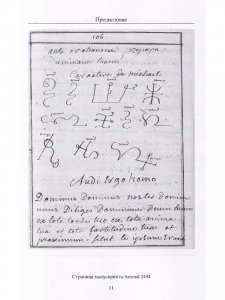 Предисловие
106
ante orationem prepara
animam tuam
Caractere de michael
Audi Ergo homo
Dominus Dominus noster Dominus
unus Diliges Dominum Deum tuum
ex toto corde tuo ex tota anima
tua et tota fortitudine tua et
proximum sicut te ipsum
Страница манускрипта Arsenal 2494
11